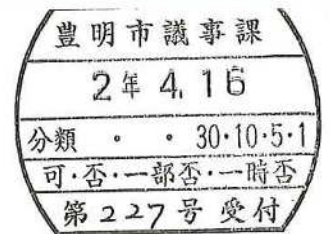 豊明市議事課
2年 4.16
分類 ・ ・ 30・10・5・1
可・否・一部否・一時否
第227号 受付